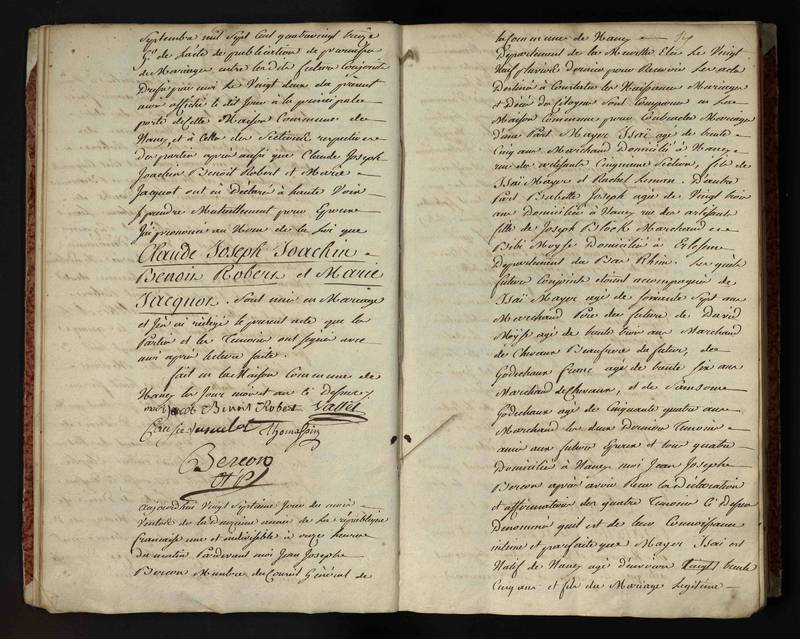 Septembre mil Sept Cent quatrevingt treize
de l'acte de publication de promesse
de Mariage entre lesdits future Conjoints
Dressé par moi le Vingt deux du présent
mois affiché le dit Jour à la principale
porte de cette Maison Commune de
Nancy, et à Celles des Sections respectives
des parties après aussi que Claude Joseph
Joachin Benoit Robert et Marie
Jacquot ont eu Déclaré à haute Voix
prendre Mutuellement pour Epoux
J'ai prononcé au Nom de la Loi que
Claude Joseph Joachin
Benoit Robert et Marie
Jacquot. Sont unis en Mariage
et j'en ai rédigé le présent acte que les
Parties et les Temoins ont signé avec
moi après lecture faite.
fait en la Maison Commune de
Nancy les Jour mois et an ci dessus
Benoit Robert Vallet
Jacquot Thomassin
Bercon
Aujourdhui Vingt Septieme Jour du mois
Ventose de la deuxieme année de la république
francaise une et indivisible à onze heures
du matin Pardevant moi Jean Josephe
Bercon Membre du Conseil Général de
la Commune de Nancy
Département de la Meurthe Elu le Vingt
Neuf Nivose dernier pour Recevoir les actes
Destinés à Constater les Naissances Mariages
et Décès des Citoyens Sont Comparus en la
Maison Commune pour Contracter Mariage
d'une Part Mayer Isaï agé de trente
Cinq ans Marchand Domicilié à Nancy
rue des artisants Cinquieme Section, fils de
Isaï Mayer et Rachel Leman. D'autre
Part Babelle Joseph agée de Vingt trois
ans Domiciliée à Nancy rue des artisants
fille de Joseph Block Marchand et
Bibi Moyse Domiciliés à
Département du Bas Rhin. Lesquels
futurs Conjoints étoient accompagnés de
Isaï Mayer agé de soixante Sept ans
Marchand Père du futur, de David
Moïse agé de trente trois ans Marchand
de Chevaux Beaufrere du futur, de
Godechaux franc agé de trente six ans
Marchand de Chevaux, et de Sansome
Godechaux agé de Cinquante quatre ans
Marchand les deux Derniers Temoins
amis aux futurs Epoux et tous quatre
Domiciliés à Nancy moi Jean Josephe
Bercon après avoir Recu la déclaration
et affirmation des quatre Temoins Ci Dessus
Denommés quil est de leur Connoissance
intime et parfaite que Mayer Isaï est
Natif de Nancy agé d'environ trente
Cinq ans et fils du Mariage Legitime